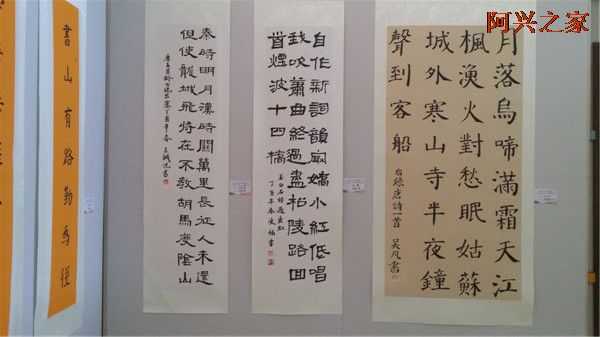 阿兴之家
月落烏啼滿霜天江
楓漁火對愁眠姑蘇
城外寒山寺半夜鐘
聲到客船
右錄唐詩一首
自作新詞韻最嬌小紅低唱
我吹蕭曲終過盡松陵路回
首煙波十四橋
姜白石詩過垂虹
丁酉年春
秦時明月漢時關萬里長征人未還
但使龍城飛將在不教胡馬度陰山
書山有路勤為徑